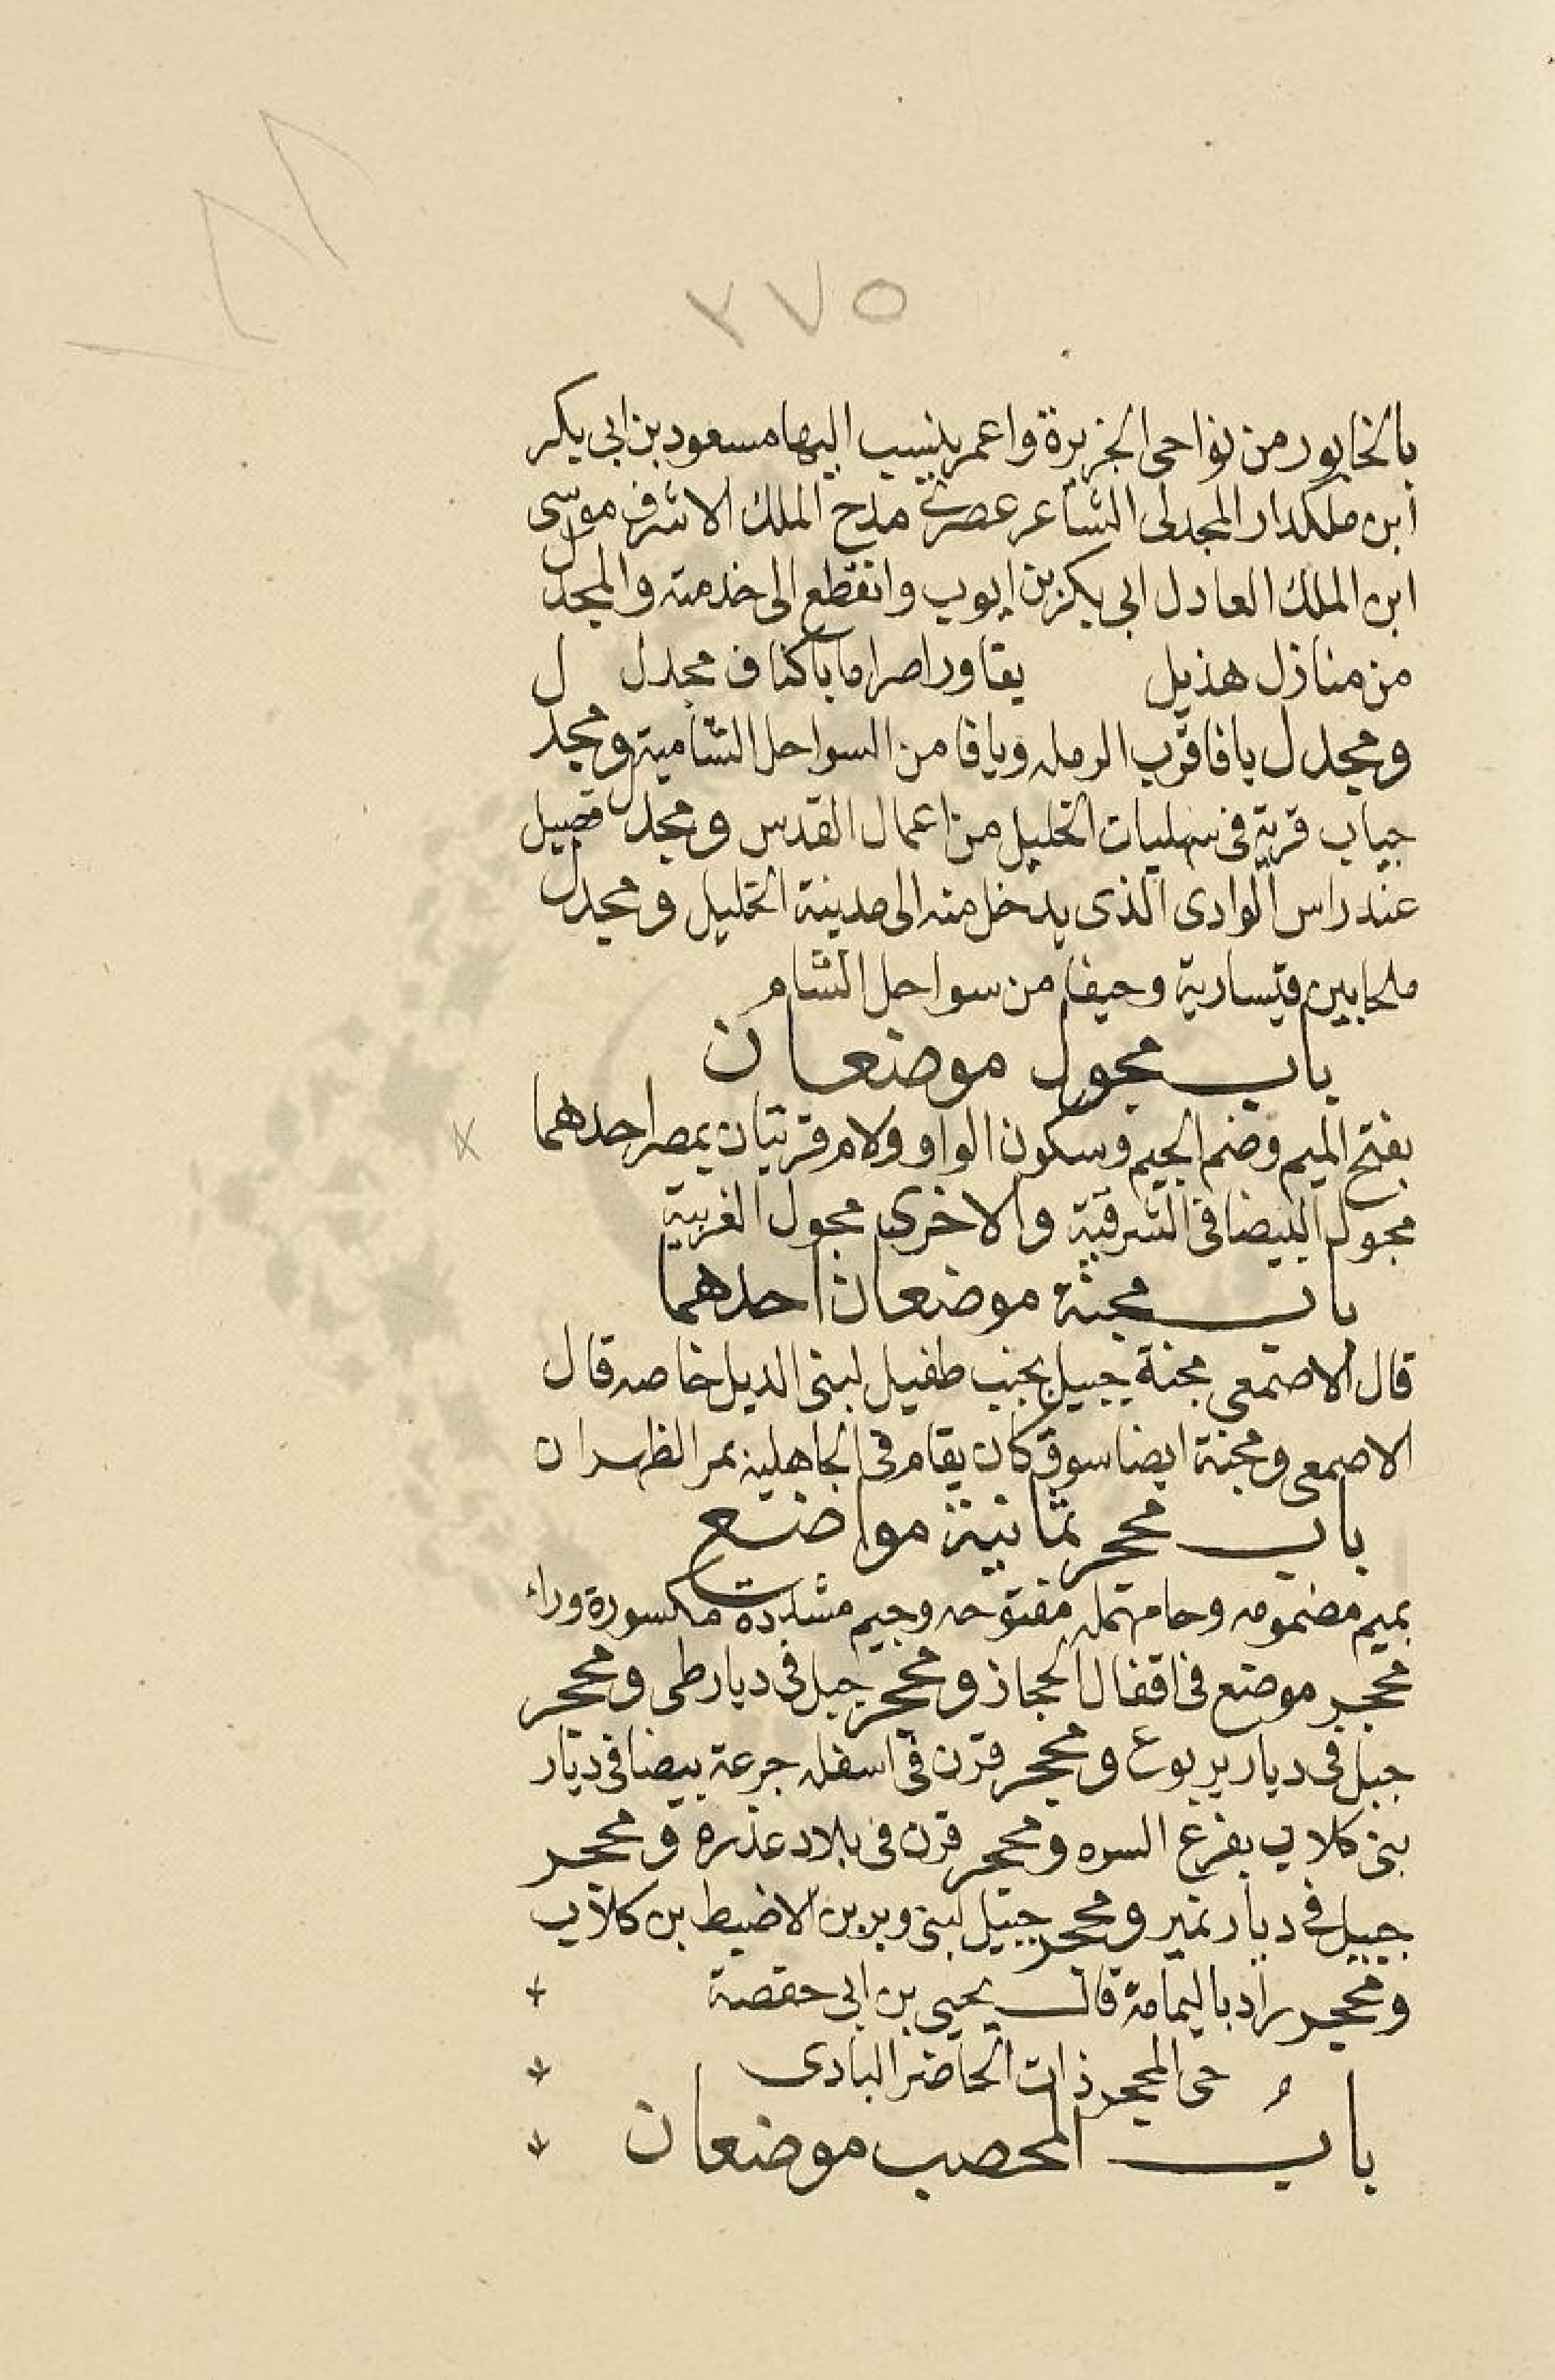 ٣٧٥
بالخابور من نواحى الجزيرة واعمر ينسب اليها مسعود بن ابى بكر
ابن ملكدار المجدلى الشاعر عصرى مدح الملك الاشرف موسى
ابن الملك العادل ابى بكر بن ايوب وانقطع الى خدمته والمجدل
من منازل هذيل يقاور اصراما باكناف مجدل
ومجدل يافا قرب الرمله ويافا من السواحل الشامية ومجدل
جياب قرية فى سهليات الخليل من اعمال القدس ومجدل فضيل
عند راس الوادى الذى يدخل منه الى مدينة الخليل ومجدل
ملحا بين قيسارية وحيفا من سواحل الشام
باب مجول موضعان
بفتح الميم وضم الجيم وسكون الواو ولام قريتان بمصر احدهما
مجول البيضا فى الشرقية والاخرى مجول الغربية
باب مجنة موضعان احدهما
قال الاصمعى مجنة جبيل بجنب طفيل لبنى الديل خاصه قال
الاصمعى ومجنة ايضا سوق كان يقام فى الجاهلية بمر الظهران
باب محجر ثمانية مواضع
بميم مضمومه وحا مهمله مفتوحه وجيم مشددة مكسورة وراء
محجر موضع فى اقفال الحجاز ومحجر جبل فى ديار طى ومحجر
جبل فى ديار يربوع ومحجر قرن فى اسفله جرعة بيضا فى ديار
بنى كلاب بفرع السره ومحجر قرن فى بلاد عذره ومحجر
جبيل فى ديار نمير ومحجر جبيل لبنى وبر بن الاضبط بن كلاب
ومحجر براد باليمامة قال يحيى بن ابى حفصة
حى المحجر ذات الحاضر البادى
باب المحصب موضعان